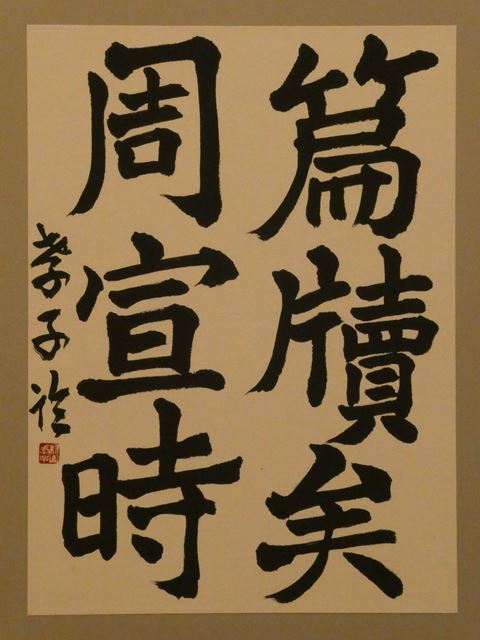 篇牘矣
周宣時
孝子臨